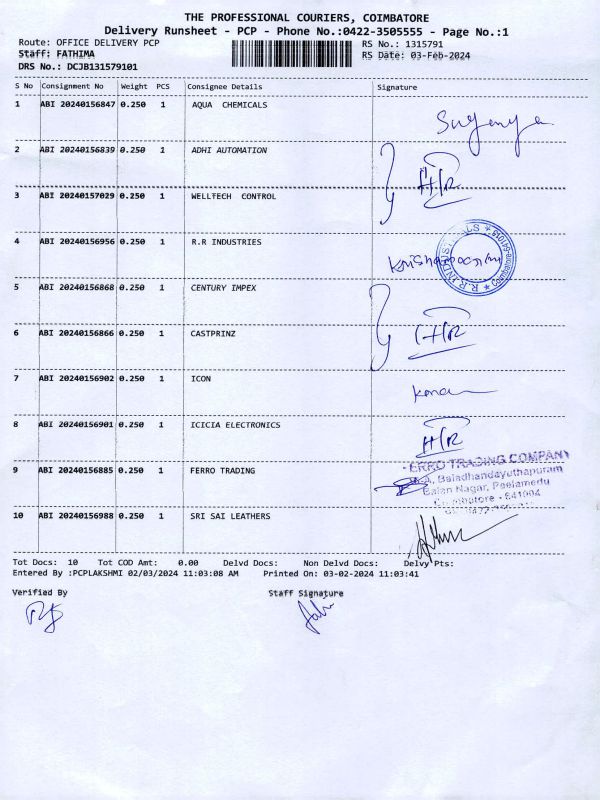 THE PROFESSIONAL COURIERS, COIMBATORE
Delivery Runsheet - PCP - Phone No.:0422-3505555 - Page No.:1
Route: OFFICE DELIVERY PCP RS No.: 1315791
Staff: FATHIMA RS Date: 03-Feb-2024
DRS No.: DCJB131579101
S No Consignment No Weight PCS Consignee Details Signature
1 ABI 20240156847 0.250 1 AQUA CHEMICALS
2 ABI 20240156839 0.250 1 ADHI AUTOMATION
3 ABI 20240157029 0.250 1 WELLTECH CONTROL
4 ABI 20240156956 0.250 1 R.R INDUSTRIES
R.R.INDUSTRIALS
5 ABI 20240156868 0.250 1 CENTURY IMPEX
6 ABI 20240156866 0.250 1 CASTPRINZ
7 ABI 20240156902 0.250 1 ICON
8 ABI 20240156901 0.250 1 ICICIA ELECTRONICS
9 ABI 20240156885 0.250 1 FERRO TRADING
ERRO TRADING COMPANY
Baladhandayuthapuram
Balan Nagar, Peelamedu
10 ABI 20240156988 0.250 1 SRI SAI LEATHERS
Tot Docs: 10 Tot COD Amt: 0.00 Delvd Docs: Non Delvd Docs: Delvy Pts:
Entered By :PCPLAKSHMI 02/03/2024 11:03:08 AM Printed On: 03-02-2024 11:03:41
Verified By Staff Signature